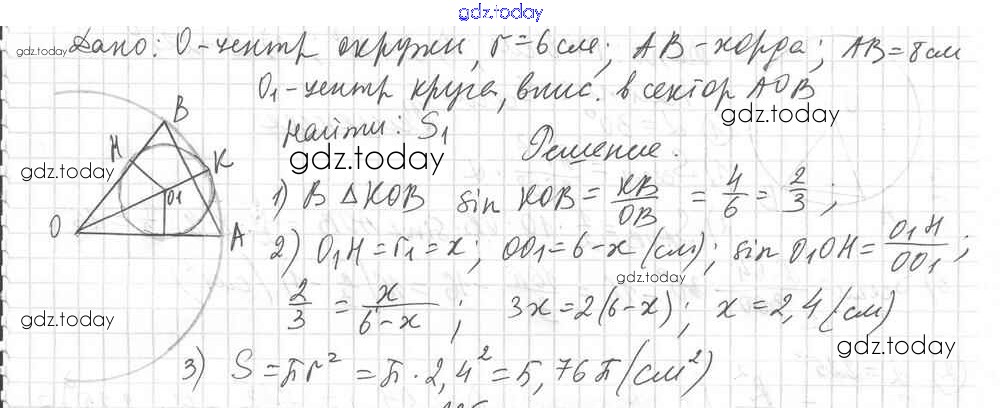 gdz.today
gdz.today Дано: О-центр окружн, r=6см; AB-хорда; AB=8см
O₁-центр круга, впис. в сектор AOB
gdz.today
найти: S₁
gdz.today
Решение.
B
H
K
O₁
O
A
gdz.today
1) В △KOB sin KOB = KB/OB = 4/6 = 2/3;
2) O₁H=r₁=x; OO₁=6-x (см); sin O₁OH = O₁H/OO₁;
gdz.today
2/3 = x/(6-x); 3x=2(6-x); x=2,4 (см)
gdz.today
gdz.today
3) S=πr²=π·2,4²=5,76π(см²)